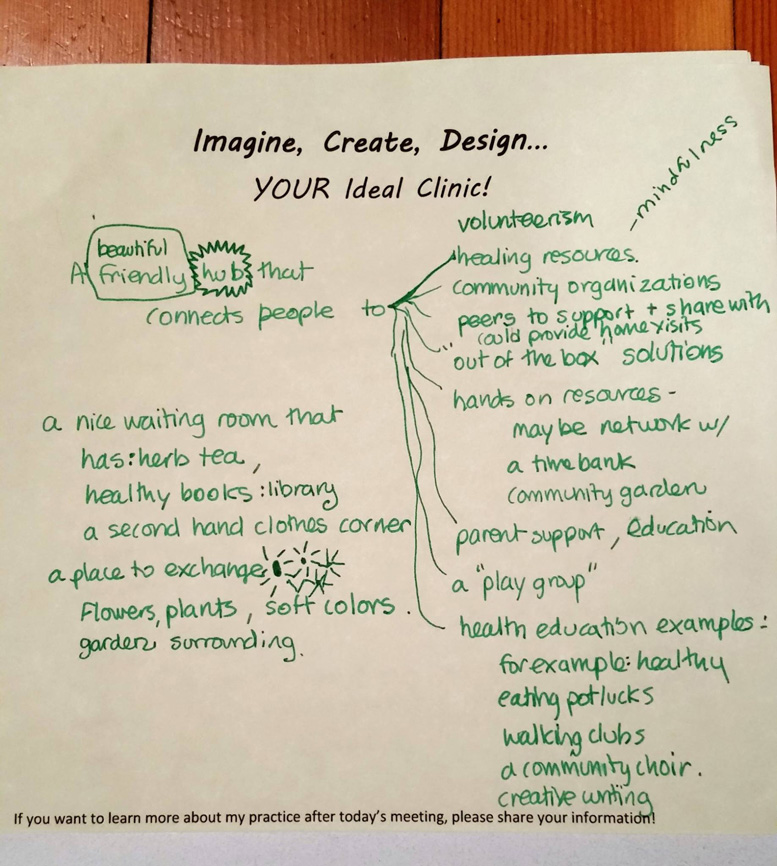 Imagine, Create, Design...
YOUR Ideal Clinic!
beautiful
A friendly hub that
connects people to
- mindfulness
volunteerism
healing resources.
community organizations
peers to support + share with
could provide home visits
"out of the box" solutions
hands on resources -
maybe network w/
a time bank
community garden
parent support, education
a "play group"
health education examples:
for example: healthy
eating potlucks
walking clubs
a community choir.
creative writing
a nice waiting room that
has: herb tea,
healthy books: library
a second hand clothes corner
a place to exchange
Flowers, plants, soft colors.
garden surrounding.
If you want to learn more about my practice after today's meeting, please share your information!